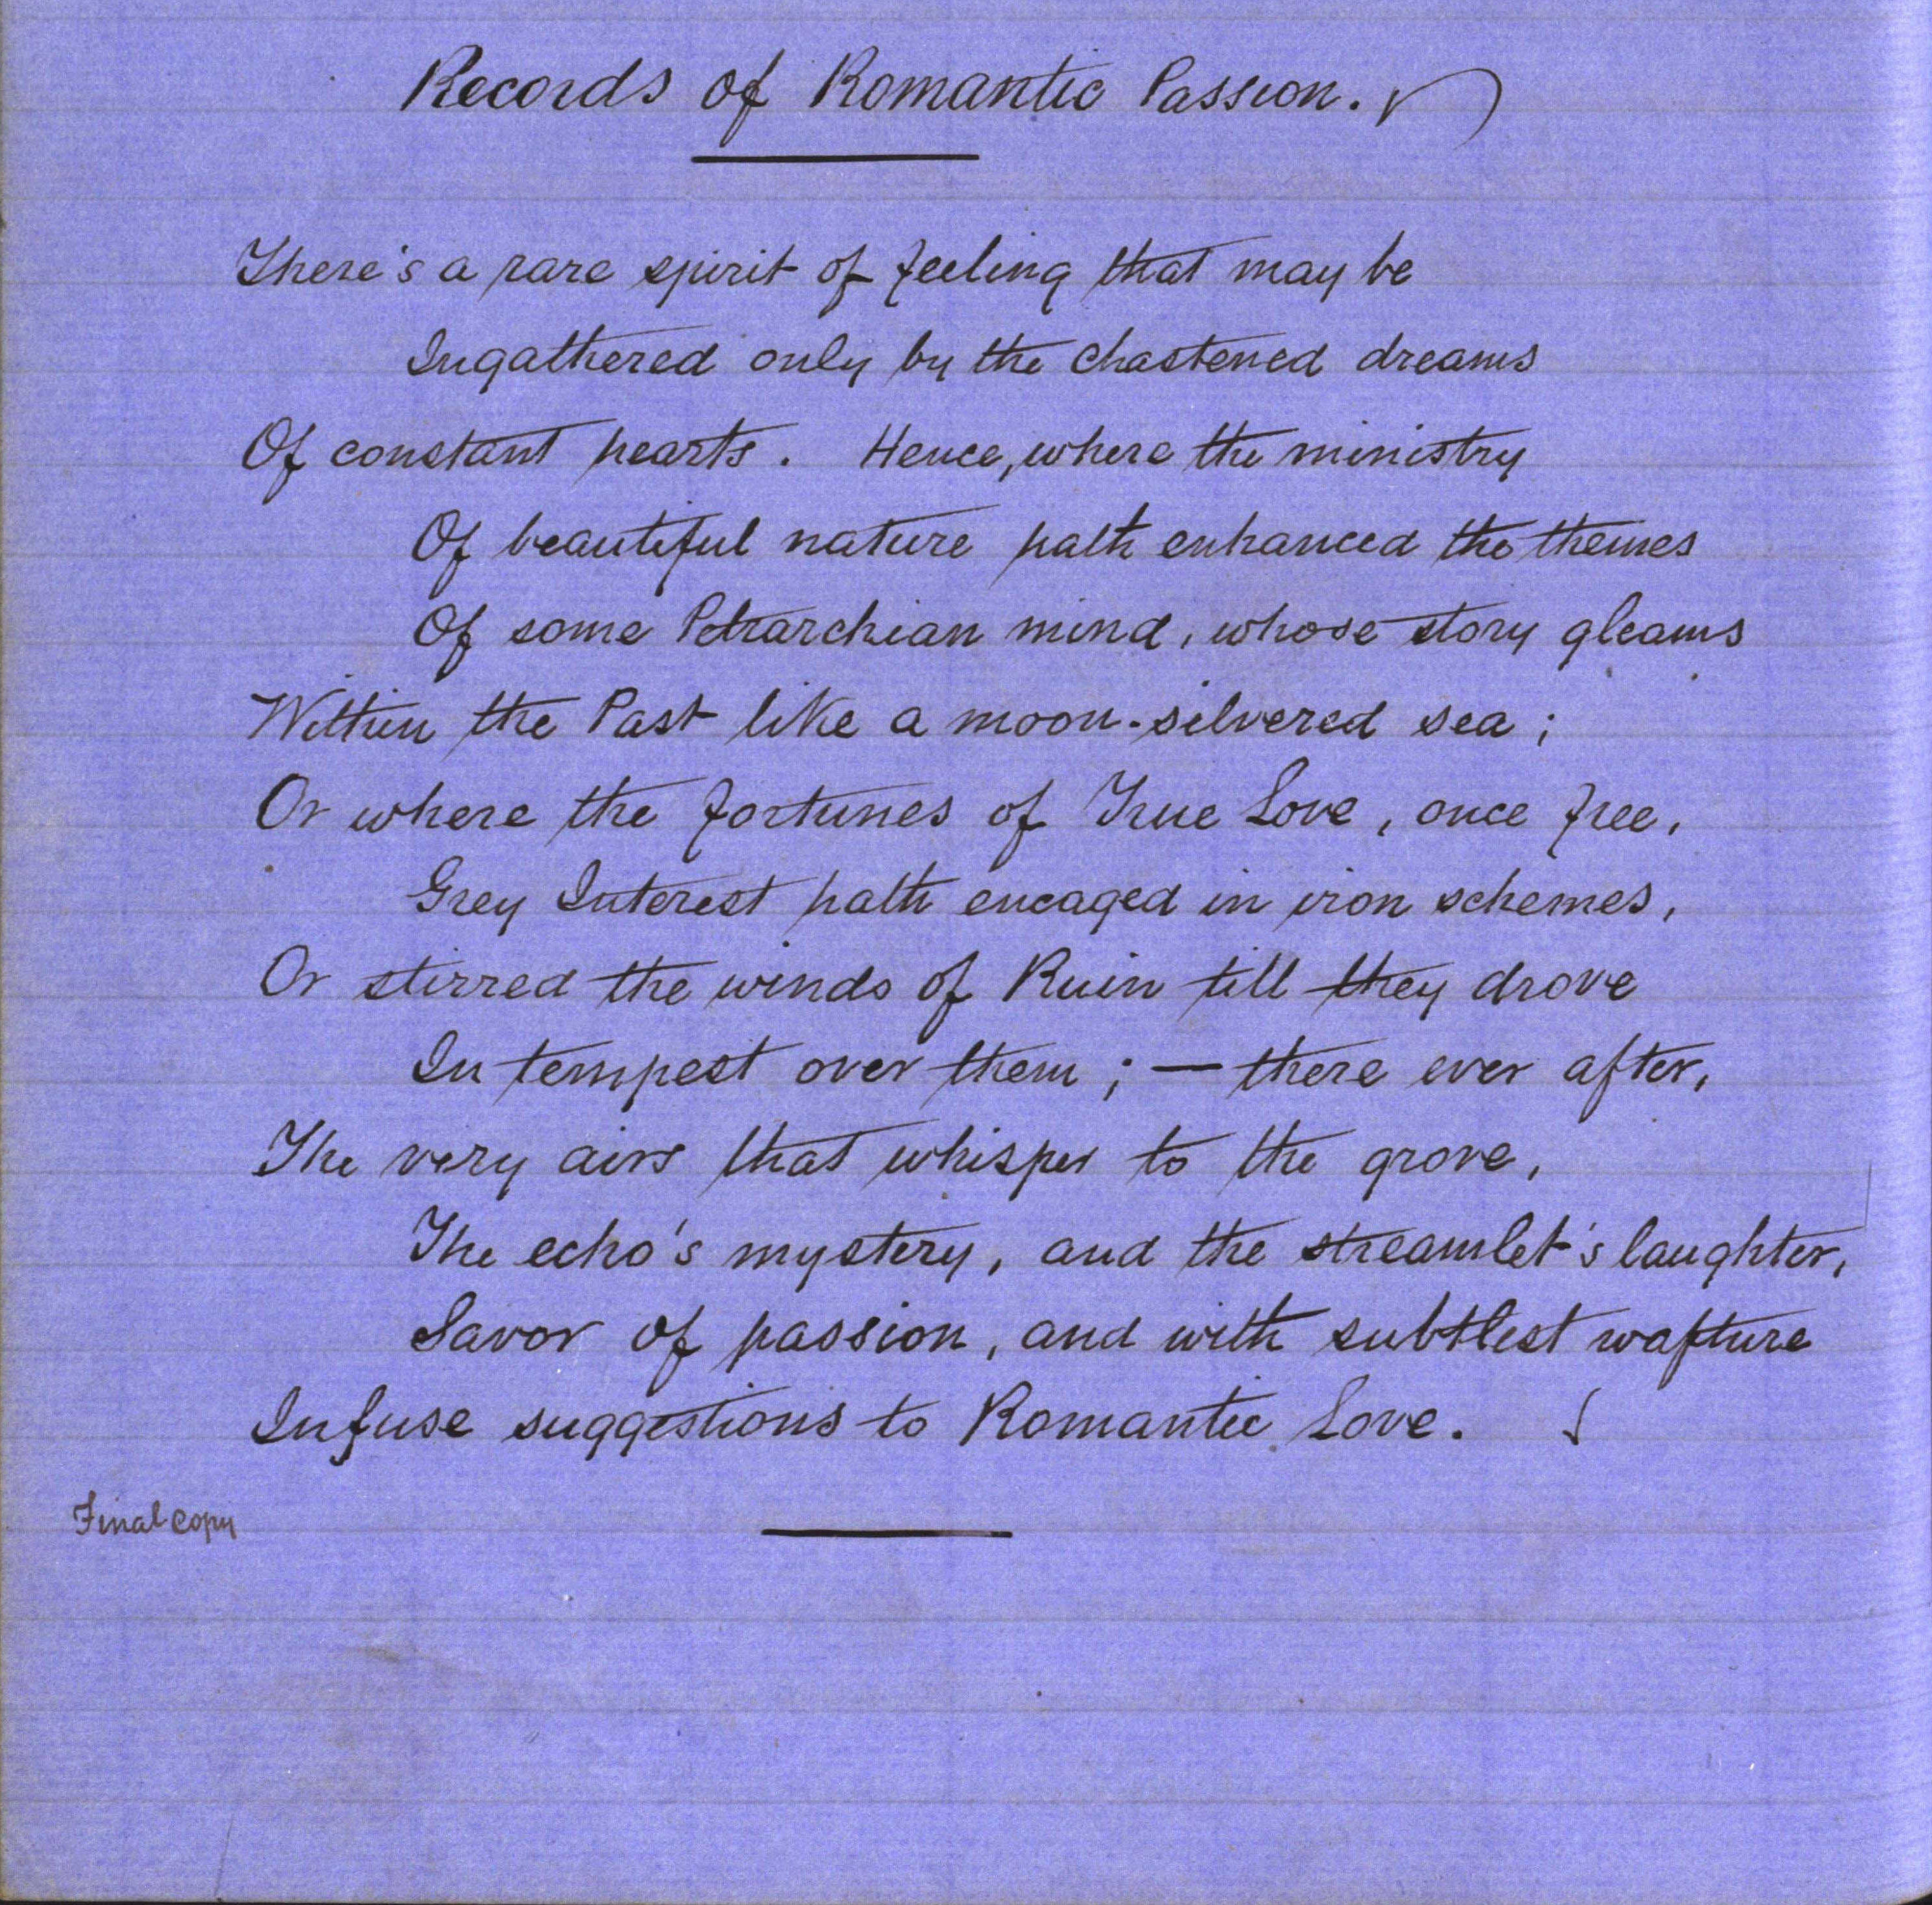 Records of Romantic Passion.
There's a rare spirit of feeling that may be
Ingathered only by the chastened dreams
Of constant hearts. Hence, where the ministry
Of beautiful nature hath enhanced the themes
Of some Petrarchian mind, whose story gleams
Within the Past like a moon-silvered sea;
Or where the fortunes of True Love, once free,
Grey Interest hath encaged in iron schemes,
Or stirred the winds of Ruin till they drove
In tempest over them; — there ever after,
The very airs that whisper to the grove,
The echo's mystery, and the streamlet's laughter,
Savor of passion, and with subtlest wafture
Infuse suggestions to Romantic Love.
Final copy